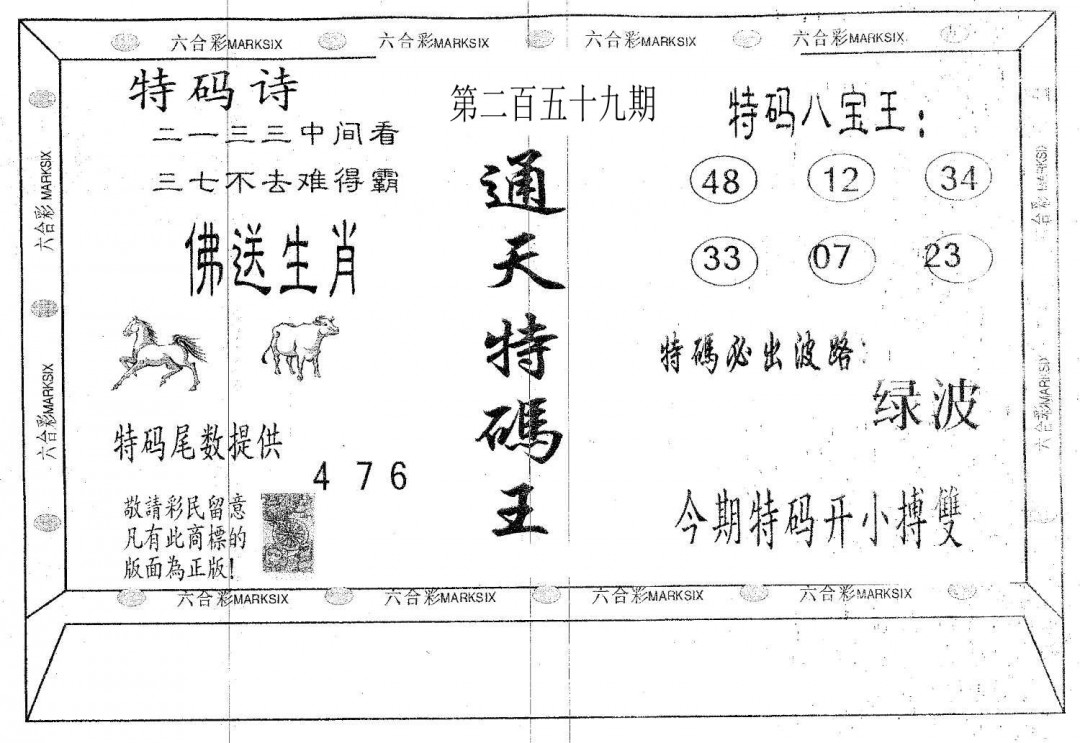 六合彩MARKSIX 六合彩MARKSIX 六合彩MARKSIX 六合彩MARKSIX
特码诗
二一三三中间看
三七不去难得霸
佛送生肖
特码尾数提供
4 7 6
敬請彩民留意
凡有此商標的
版面為正版!
第二百五十九期
通天特碼王
特码八宝王:
48 12 34
33 07 23
特碼必出波路:
绿波
今期特码开小搏雙
六合彩 MARKSIX
六合彩MARKSIX
六合彩 MARKSIX
六合彩MARKSIX
六合彩MARKSIX 六合彩MARKSIX 六合彩MARKSIX 六合彩MARKSIX